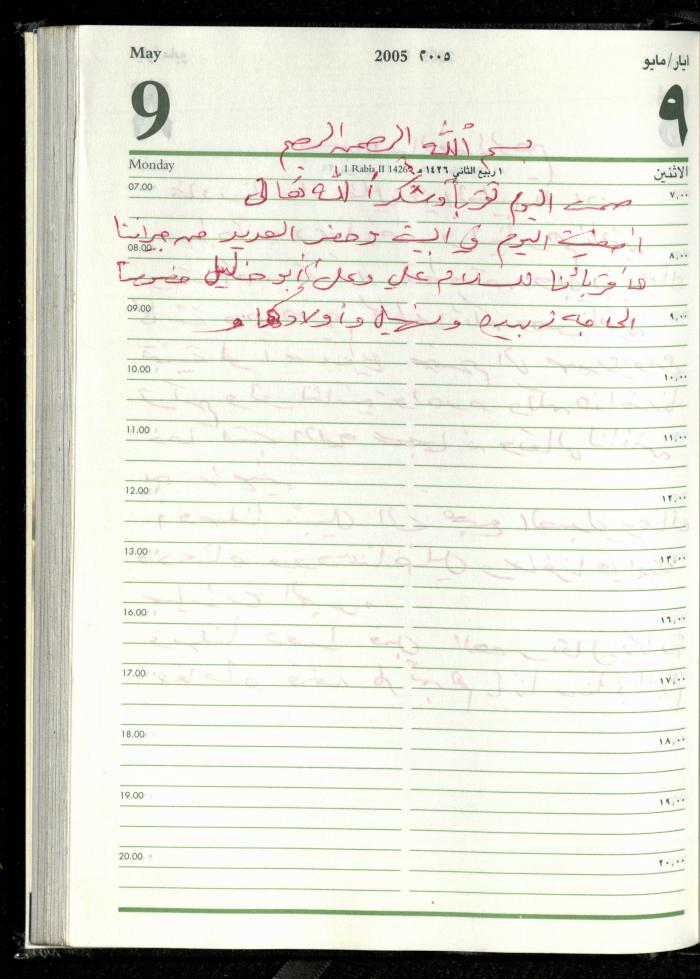 May 2005 ٢٠٠٥ أيار/مايو
9 ٩
بسم الله الرحمن الرحيم
Monday 1 Rabia II 1426 ١ ربيع الثاني ١٤٢٦ هـ الاثنين
07.00 ٧,٠٠
صمت اليوم تقرباً وشكراً لله تعالى
أمضيت اليوم في البيت وحضر العديد من جيراننا
08.00 ٨,٠٠
وأقربائنا للسلام علي وعلى أبو خليل خصوصاً
09.00 ٩,٠٠
الحاجه زبيده و وأولادها و
10.00 ١٠,٠٠
11.00 ١١,٠٠
12.00 ١٢,٠٠
13.00 ١٣,٠٠
16.00 ١٦,٠٠
17.00 ١٧,٠٠
18.00 ١٨,٠٠
19.00 ١٩,٠٠
20.00 ٢٠,٠٠